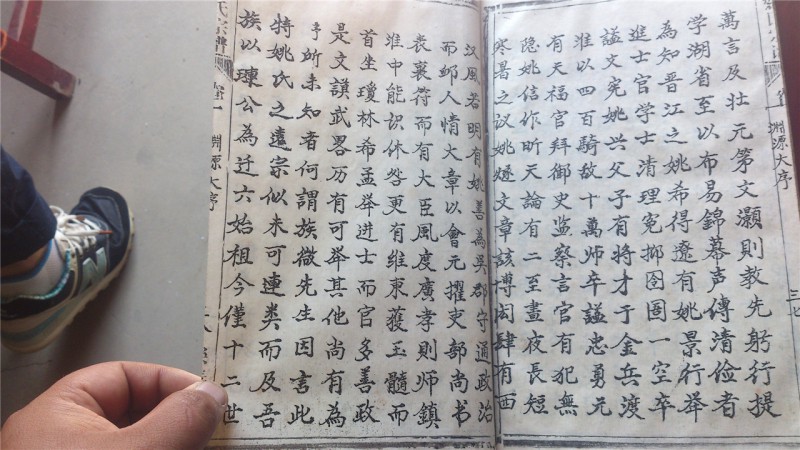 萬言及壯元第文灝則教先躬行提
学湖省至以布易錦幕声傳清儉者
為知晋江之姚希得遼有姚景行举
進士官学士清理冤抑囹圄一空卒
謚文宪姚兴父子有将才于金兵渡
淮以四百騎敌十萬师卒謚忠勇元
有天福官拜御史监察言官有犯無
隐姚信作昕天論有二至晝夜長短
寒暑之议姚㜅文章該博闳肆有西
汉風若明有姚善為吴郡守通政治
而鄉人情文章以會元擢吏部尚书
丧裏符而有大臣風度廣孝则师鎮
淮中能识休咎更有维東蒦玉髓而
首坐瓊林希孟举进士而官多善政
是文謨武畧历有可举其他尚有為
予所未知者何謂族微先生因言此
特姚氏之遠宗似未可連类而及吾
族以琜公為迁六始祖今僅十二世
氏宗譜
卷一
淵源大序
卷一
淵源大序
三七